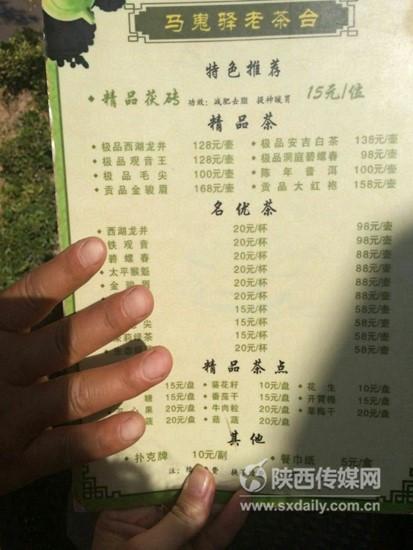 马嵬驿老茶台
特色推荐
精品茯砖 功效：减肥去脂 提神暖胃 15元/位
精品茶
极品西湖龙井 128元/壶 极品安吉白茶 138元/壶
极品观音王 128元/壶 极品洞庭碧螺春 98元/壶
极品毛尖 100元/壶 陈年普洱 100元/壶
贡品金骏眉 168元/壶 贡品大红袍 158元/壶
名优茶
西湖龙井 20元/杯 98元/壶
铁观音 20元/杯 98元/壶
碧螺春 20元/杯 88元/壶
太平猴魁 20元/杯 88元/壶
金骏眉 20元/杯 88元/壶
15元/杯 58元/壶
尖 15元/杯 58元/壶
茉莉绿茶 15元/杯 58元/壶
20元/杯 58元/壶
精品茶点
15元/盘 葵花籽 10元/盘 花生 10元/盘
糖 15元/盘 番茄干 15元/盘 开胃梅 15元/盘
心果 20元/盘 牛肉粒 20元/盘 果梅干 20元/盘
蔬 20元/盘 菇蔬 20元/盘
其他
扑克牌 10元/副 餐巾纸 5元/盒
注：
陕西传媒网
www.sxdaily.com.cn